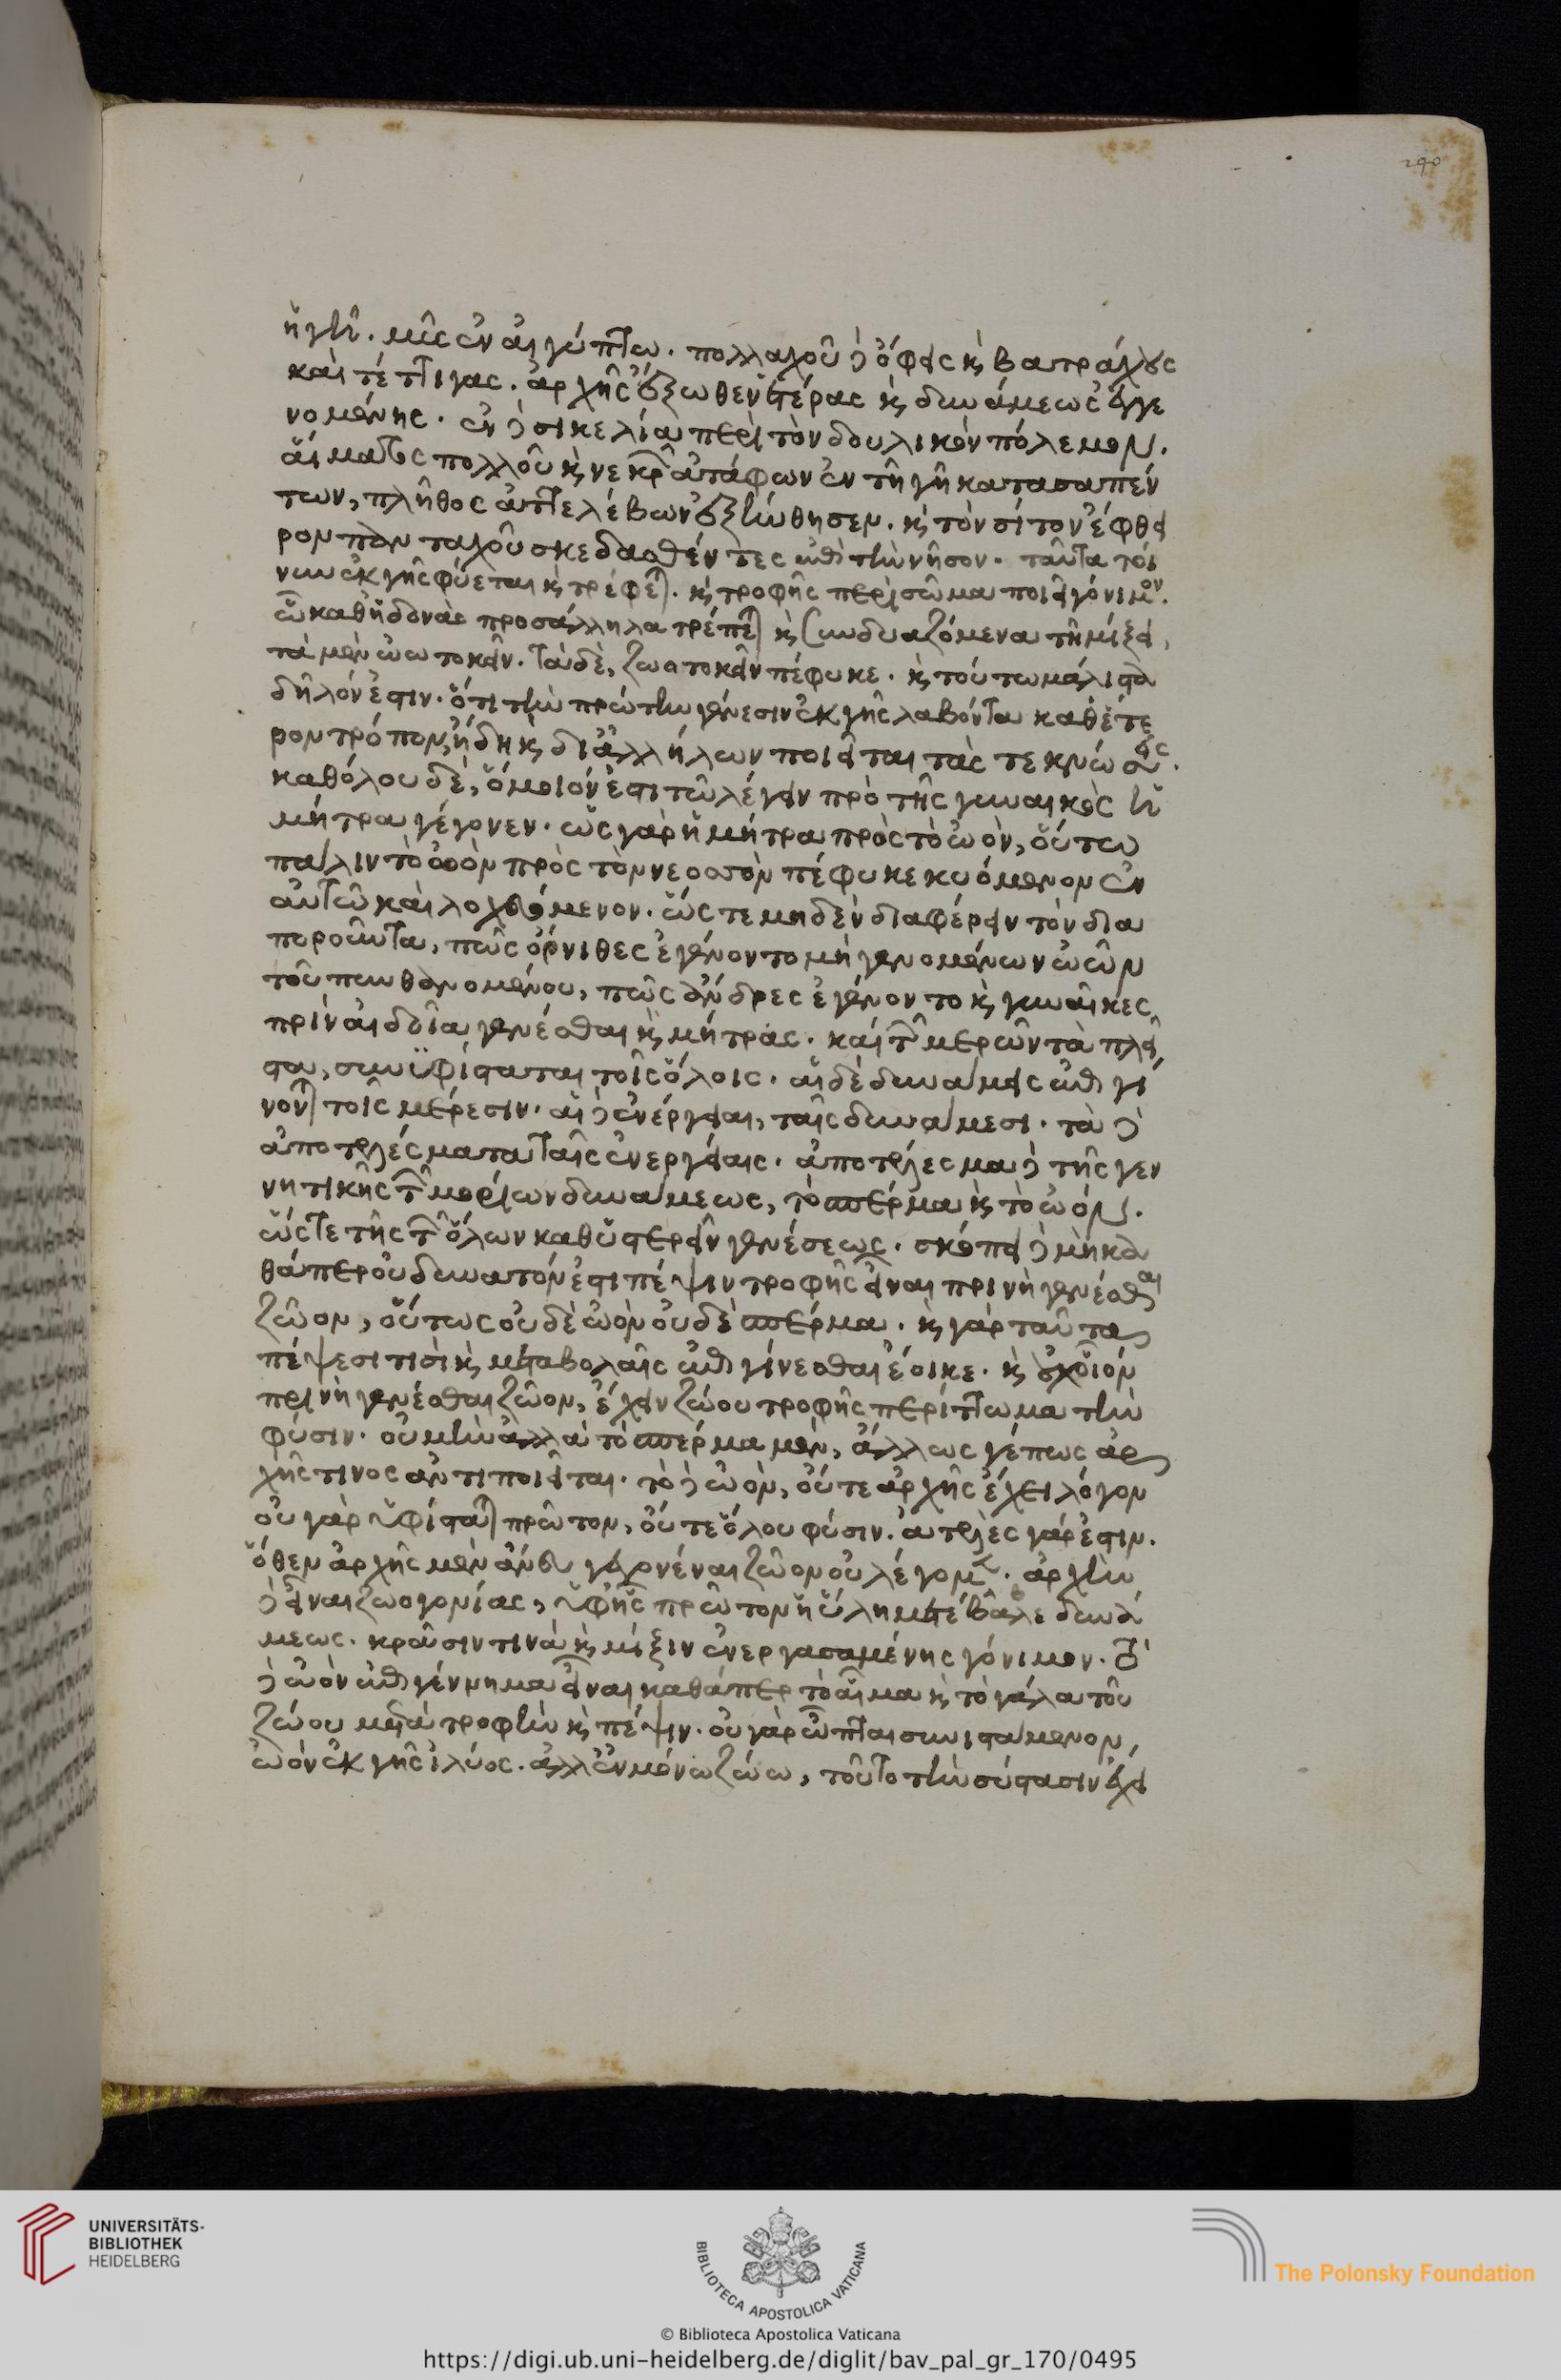 ἡ γῆ. μῦς ἐν αἰγύπτω. πολλαχοῦ δὲ ὄφεις καὶ βατράχους
καὶ τέττιγας. ἀρχῆς ἔξωθεν ἑτέρας καὶ δυνάμεως ἐγγε
νομένης. ἐν δὲ σικελία περὶ τὸν δουλικὸν πόλεμον.
αἵματος πολλοῦ καὶ νεκρῶν ἀτάφων ἐν τῆ γῆ κατασαπέν
των, πλῆθος ἀττελέβων ἐξήνθησεν. καὶ τὸν σῖτον ἔφθει
ρον πανταχοῦ σκεδασθέντες ἐπὶ τὴν νῆσον. ταῦτα τοί
νυν ἐκ γῆς φύεται καὶ τρέφεται. καὶ τροφῆς περίσωμα ποιεῖ γόνιμον.
ὧ καθ' ἡδονὰς προσάλληλα τρέπεται καὶ συνδυαζόμενα τῆ μίξει,
τὰ μὲν ὠωτοκεῖν. τὰ δὲ, ζωοτοκεῖν πέφυκε. καὶ τούτω μάλιστα
δῆλόν ἐστιν. ὅτι τὴν πρώτην γένεσιν ἐκ γῆς λαβόντα καθ' ἕτε
ρον τρόπον, ἤδη καὶ δι' ἀλλήλων ποιεῖται τὰς τεκνώσεις.
καθόλου δὲ, ὅμοιόν ἐστι τῶ λέγειν πρὸ τῆς γυναικὸς ἡ
μήτρα γέγονεν. ὡς γὰρ ἡ μήτρα πρὸς τὸ ὠὸν, οὕτω
πάλιν τὸ ὠὸν πρὸς τὸν νεοσσὸν πέφυκε κυόμενον ἐν
αὐτῶ καὶ λοχευόμενον. ὥστε μηδὲν διαφέρειν τὸν δια
ποροῦντα, πῶς ὄρνιθες ἐγένοντο μὴ γενομένων ὠῶν
τοῦ πυνθανομένου, πῶς ἄνδρες ἐγένοντο καὶ γυναῖκες
πρὶν αἰδοῖα γενέσθαι καὶ μήτρας. καί τῶν μερῶν τὰ πλεῖ
στα, συνυφίσταται τοῖς ὅλοις. αἱ δὲ δυνάμεις ἐπιγί
νονται τοῖς μέρεσιν. αἱ δὲ ἐνέργειαι, ταῖς δυνάμεσι. τὰ δὲ
ἀποτελέσματα ταῖς ἐνεργείαις. ἀποτέλεσμα δὲ τῆς γεν
νητικῆς τῶν μορίων δυνάμεως, τὸ σπέρμα καὶ τὸ ὠόν.
ὥστε τῆς τῶν ὅλων καθυστερεῖν γενέσεως. σκόπει δὲ μὴ κα
θάπερ οὐ δυνατόν ἐστι πέψιν τροφῆς εἶναι πρινὴ γενέσθαι
ζῶον, οὕτως οὐδὲ ὠὸν οὐδὲ σπέρμα. καὶ γὰρ ταῦτα
πέψεσι τισὶ καὶ μεταβολαῖς ἐπιγίνεσθαι ἔοικε. καὶ οὐχ οἷόν
πρινὴ γενέσθαι ζῶον, ἔχειν ζώου τροφῆς περίττωμα τὴν
φύσιν. οὐ μὴν ἀλλὰ τὸ σπέρμα μὲν, ἄλλως γέ πως ἀρ
χῆς τινος ἀντιποιεῖται. τὸ δὲ ὠὸν, οὔτε ἀρχῆς ἔχει λόγον
οὐ γὰρ ὑφίσταται πρῶτον, οὔτε ὅλου φύσιν. ἀτελὲς γάρ ἐστιν.
ὅθεν ἀρχῆς μὲν ἄνευ γεγονέναι ζῶον οὐ λέγομεν. ἀρχὴν
δὲ εἶναι ζωογονίας, ὑφ' ἧς πρῶτον ἡ ὕλη μετέβαλε δυνά
μεως. κρᾶσιν τινὰ καὶ μίξιν ἐνεργασαμένης γόνιμον. τὸ
δὲ ὠὸν ἐπιγέννημα εἶναι καθάπερ τὸ αἷμα καὶ τὸ γάλα τοῦ
ζώου μετὰ τροφὴν καὶ πέψιν. οὐ γὰρ ὦπται συνιστάμενον,
ὠὸν ἐκ γῆς ἰλύος. ἀλλ' ἐν μόνω ζώω, τοῦτο τὴν σύστασιν ἔχει
290
UNIVERSITÄTS-
BIBLIOTHEK
HEIDELBERG
BIBLIOTECA APOSTOLICA VATICANA
The Polonsky Foundation
© Biblioteca Apostolica Vaticana
https://digi.ub.uni-heidelberg.de/diglit/bav_pal_gr_170/0495